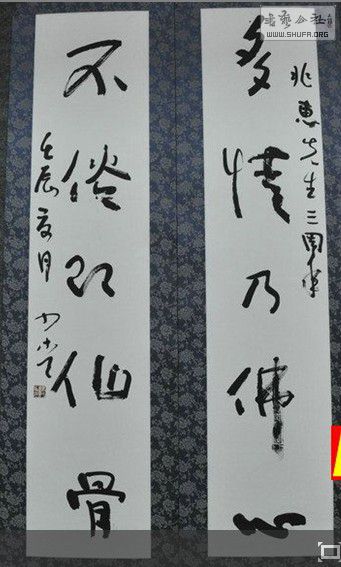 书艺公社
WWW.SHUFA.ORG
兆惠先生
多情乃佛心
不俗即仙骨
壬辰夏月